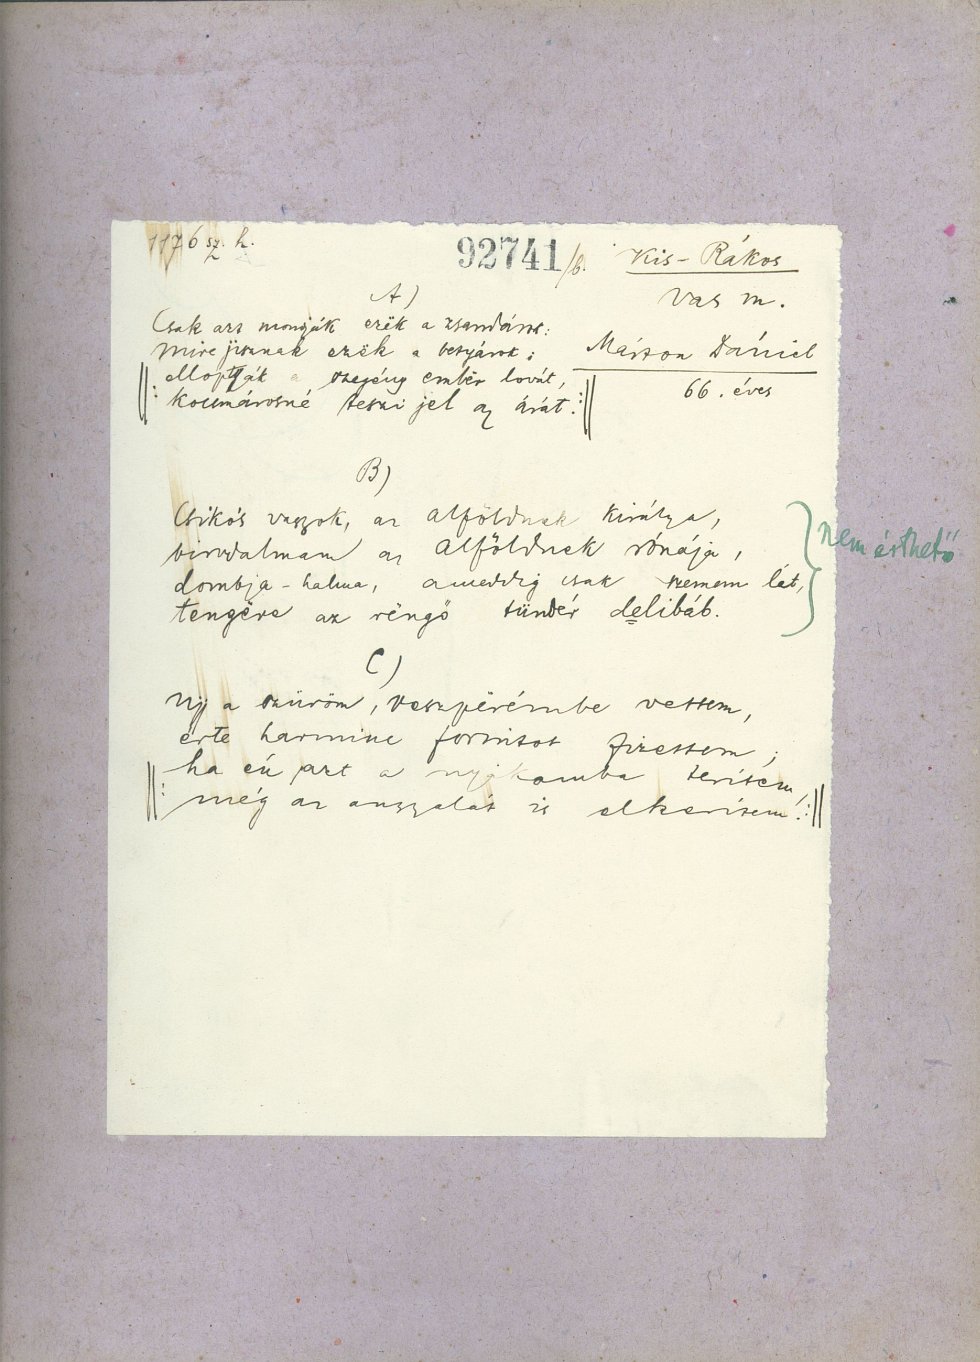 1176 sz. h.
92741/b.
Kis-Rákos
Vas m.
Márton Dániel
66. éves
A)
Csak azt mongyák ezëk a zsandárok:
Mire jisznak ezëk a betyárok;
||: ellopják a szegény embër lovát,
kocsmárosné teszi jel az árát. :||
B)
Csikós vagyok, az alföldnek királya,
birodalmam az alföldnek rónája,
dombja-halma, ameddig csak szemem lát,
tengëre az rëngő tündér delibáb.
nem érthető
C)
Uj a szűröm, Veszpërémbe vettem,
érte harminc forintot fizettem;
||: ha én azt a nyakamba terítem,
még az angyalát is elkerítem. :||